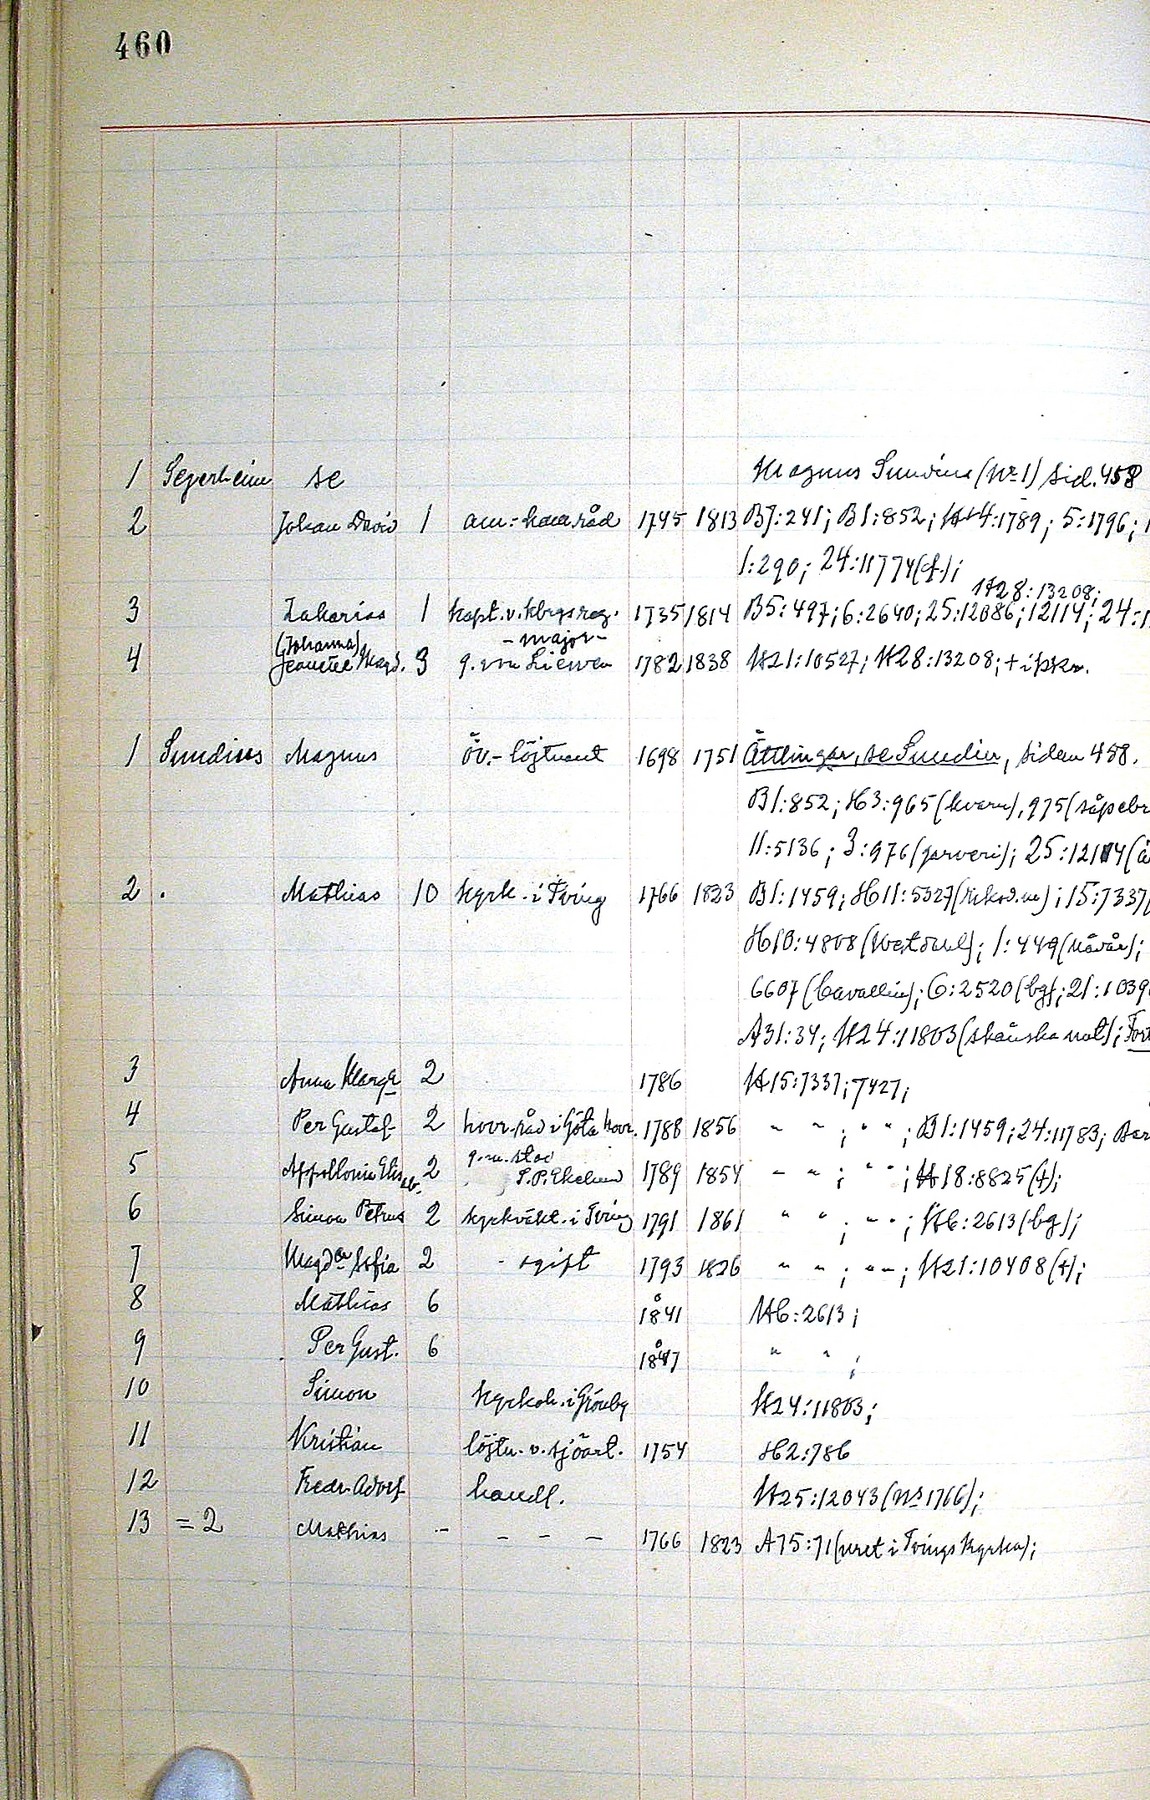 460
1 Segerheim se Magnus Sundius (No 1) sid. 458
2 Johan David 1 am:kam.råd 1745 1813 B7:241; B1:852; H14:1789; 5:1796;
1:290; 24:11774(f);
H28:13208;
3 Zakarias 1 kapt. v. kbrgs reg. 1735 1814 B5:497; 6:2640; 25:12086; 12114; 24:
(Johanna) -major-
4 Jeanette Magd. 3 g.m. Liewen 1782 1838 H21:10527; H28:13208; + i pkr.
1 Sundius Magnus öv.-löjtnant 1698 1751 Ättlingar, se Sundin, sidan 458.
B1:852; H3:965(kvarn), 975(såpebr
11:5136; 3:976(garveri); 25:12114(
2 . Mathias 10 kyrk. i Tving 1766 1823 B1:1459; H11:5327(riksd.m); 15:7337
H10:4808( 1:449(nåvår);
6607 (Cavallin); 6:2520(bg); 21:1039
A31:34; H24:11803(skånska nat);
3 Anna Marg:a 2 1786 H15:7337; 7427;
4 Per Gustaf 2 hovr.råd i Göta hovr. 1788 1856 " " ; " " ; B1:1459; 24:11783;
g.m.
5 Appollonia Elisab. 2 S.P. Ekelund 1789 1854 " " ; " " ; H18:8825(+);
6 Simon Petrus 2 kyrkvakt. i Tving 1791 1861 " " ; " " ; H6:2613(bg);
7 Magd:a Sofia 2 - ogift 1793 1826 " " ; " " ; H21:10408(+);
8 Mathias 6 1841 H6:2613;
9 Per Gust. 6 1847 " " ;
10 Simon kyrkoh. i Grönby H24:11803;
11 Kristian löjtn. v. sjöart. 1754 H2:786
12 Fredr. Adolf handl. H25:12043(No 1766);
13 = 2 Mathias - - - - 1766 1823 A75:71(uret i Tvings kyrka);